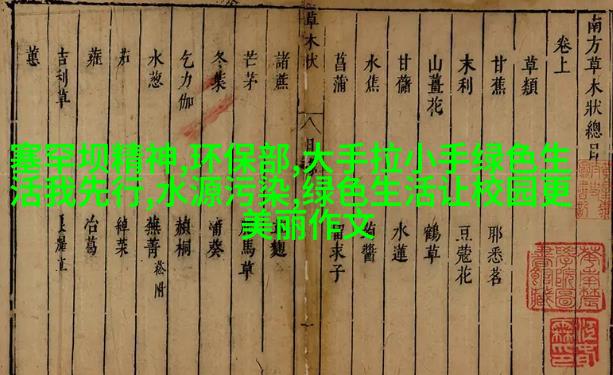 南方草木狀總目
卷上
草類
甘蕉 耶悉茗
末利 豆蔻花
山薑花 鶴草
甘藷 水蓮
水蕉
菖蒲 求子
草木狀 八
諸蔗
芒茅 馬草
冬葉 蒲葵
乞力伽 赬桐
水葱 蕪菁 菘附
茄 綽菜
蕹 冶葛
吉利草
蕙
塞罕坝精神,环保部,大手拉小手绿色生
活我先行,水源污染,绿色生活让校园更
美丽作文